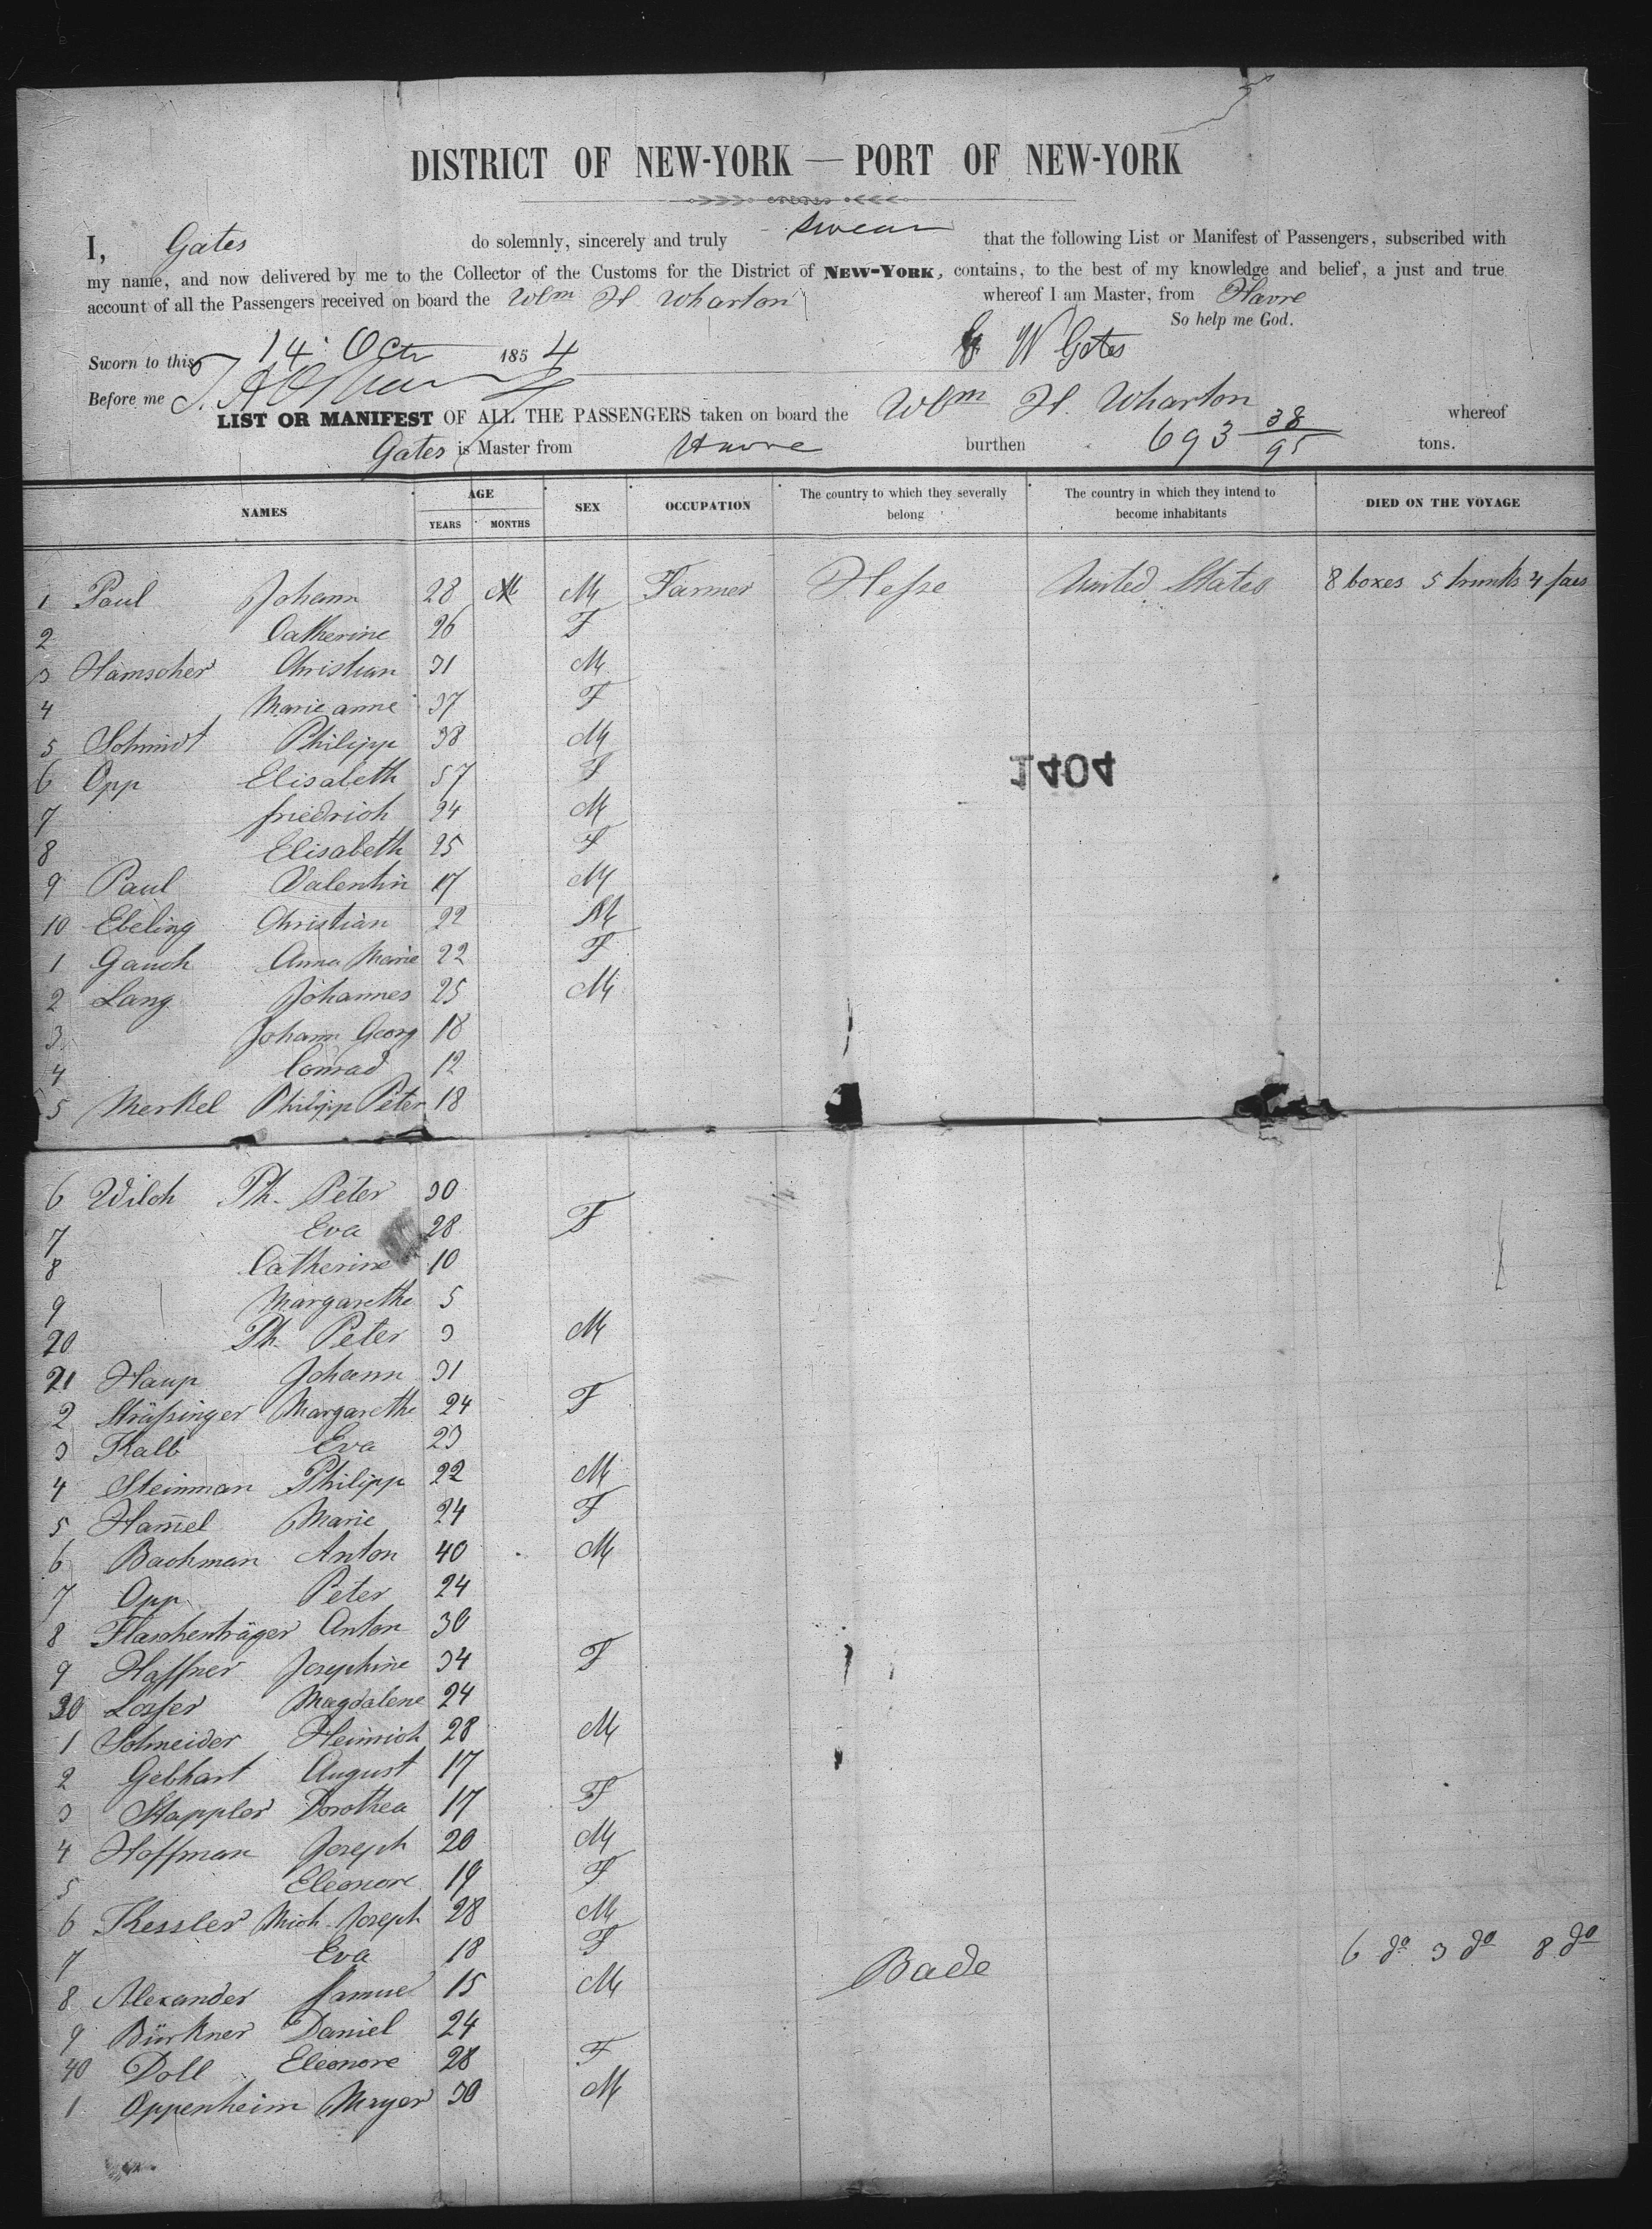 DISTRICT OF NEW-YORK — PORT OF NEW-YORK
I, Gates do solemnly, sincerely and truly swear that the following List or Manifest of Passengers, subscribed with
my name, and now delivered by me to the Collector of the Customs for the District of NEW-YORK, contains, to the best of my knowledge and belief, a just and true
account of all the Passengers received on board the Wm H. Wharton whereof I am Master, from Havre
So help me God.
Sworn to this 14 Octr 1854 G W Gates
Before me
LIST OR MANIFEST OF ALL THE PASSENGERS taken on board the Wm H. Wharton whereof
Gates is Master from Havre burthen 693 38/95 tons.
NAMES AGE YEARS MONTHS SEX OCCUPATION The country to which they severally belong The country in which they intend to become inhabitants DIED ON THE VOYAGE
1 Paul Johann 28 M M Farmer Hesse United States 8 boxes 5 trunks 4
2 Catherine 26 F
3 Hamscher Christian 31 M
4 Marie anne 37 F
5 Schmidt Philipp 38 M
1404
6 Opp Elisabeth 57 F
7 friedrich 24 M
8 Elisabeth 25 F
9 Paul Valentin 17 M
10 Ebeling Christian 22 M
1 Gauch Anna Marie 22 F
2 Lang Johannes 25 M
3 Johann Georg 18
4 Conrad 12
5 Merkel Philipp Peter 18
6 Wilch Ph. Peter 30
7 Eva 28 F
8 Catherine 10
9 Margarethe 5
20 Ph. Peter 3 M
21 Haup Johann 31
2 Sträßinger Margarethe 24 F
3 Kalb Eva 23
4 Steinman Philipp 22 M
5 Ham̅el Marie 24 F
6 Bachman Anton 40 M
7 Opp Peter 24
8 Flaschenträger Anton 30
9 Haffner Josephine 34 F
30 Magdalene 24
1 Schneider Heinrich 28 M
2 Gebhart August 17
3 Stappler Dorothea 17 F
4 Hoffman Joseph 20 M
5 Eleonore 19 F
6 Kessler Mich. Joseph 28 M
7 Eva 18 F
8 Alexander Samuel 15 M Bade 6 do 3 do 8 do
9 Bürkner Daniel 24
40 Doll Eleonore 28 F
1 Oppenheim Mayer 30 M